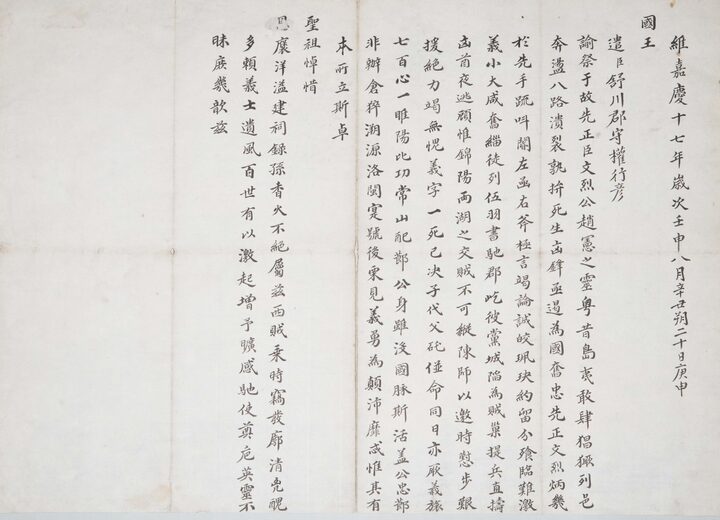 維嘉慶十七年歲次壬申八月辛丑朔二十日庚申
國王
遣臣舒川郡守權行彥
諭祭于故先正臣文烈公趙憲之靈粤昔島夷敢肆猖獗列邑
奔盪八路潰裂孰拚死生凾鋒亟遏為國奮忠先正文烈炳幾
於先手疏呌閽左凾右斧極言竭論誠皎珮玦約留分飱臨難激
義小大咸奮緇徒列伍羽書馳郡屹彼黨城陷為賊巢提兵直擣
凾首夜逃顧惟錦陽兩湖之交賊不可縱陳師以邀時愆步艱
援絶力竭無愧義字一死已決子代父砣倂命同日亦厥義旅
七百心一睢陽比功常山配鄒公身雖沒國脉斯活盖公忠鄒
非辦倉猝溯源洛閩寔號後栗見義勇為顛沛靡忒惟其有
本所立斯卓
聖祖悼惜
恩褱洋溢建祠錄孫香火不絶屬玆西賊乘時竊發廓清兇醜
多賴義士遺風百世有以激起增予曠感馳使奠卮英靈不
昧庶幾歆玆